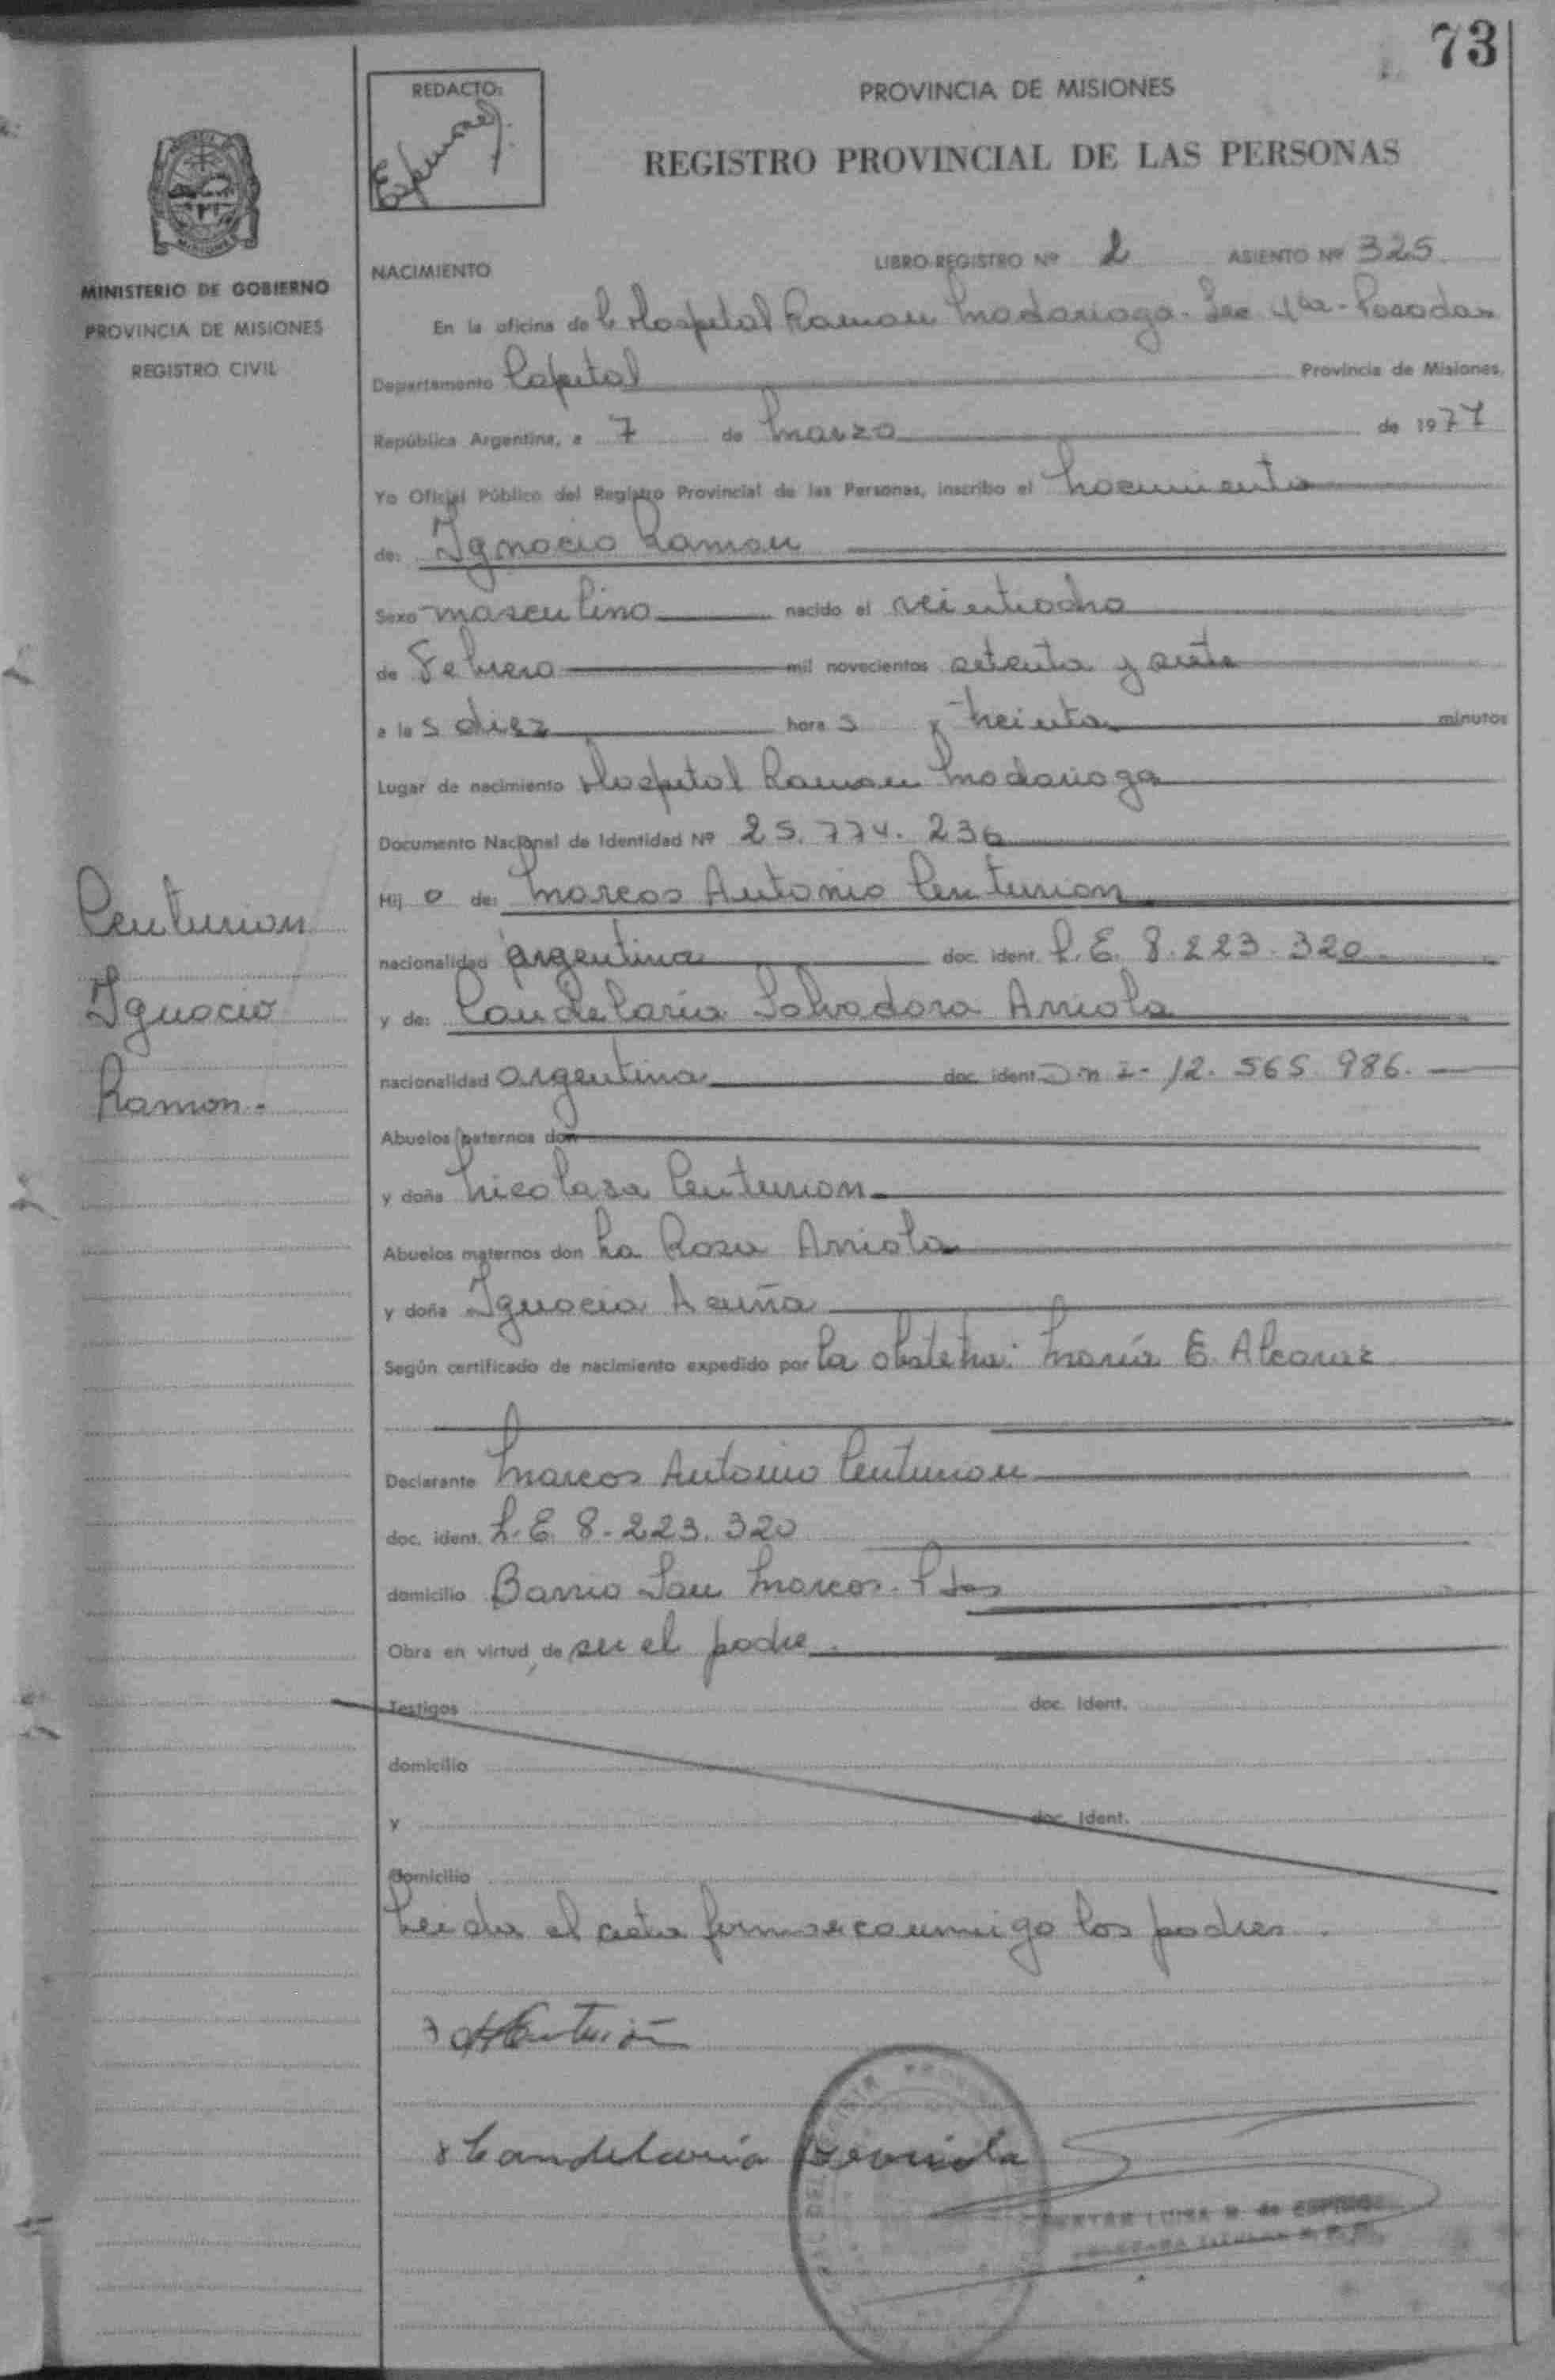 73
REDACTO:
PROVINCIA DE MISIONES
REGISTRO PROVINCIAL DE LAS PERSONAS
MINISTERIO DE GOBIERNO
PROVINCIA DE MISIONES
REGISTRO CIVIL
NACIMIENTO
LIBRO-REGISTRO Nº 2 ASIENTO Nº 325
En la oficina del Hospital Ramon Madariaga. Sec 4ta - Posadas
Departamento Capital Provincia de Misiones,
República Argentina, a 7 de Marzo de 1977
Yo Oficial Público del Registro Provincial de las Personas, inscribo el Nacimiento
de: Ignacio Ramon
Sexo masculino nacido el veintiocho
de Febrero mil novecientos setenta y siete
a las diez horas y treinta minutos
Lugar de nacimiento Hospital Ramon Madariaga
Documento Nacional de Identidad Nº 25.774.236
Hijo de: Marcos Antonio Centurion
nacionalidad argentina doc. ident. L.E. 8.223.320
y de: Candelaria Salvadora Arriola
nacionalidad argentina doc. ident. 12.565.986.
Abuelos paternos don
y doña Nicolasa Centurion
Abuelos maternos don La Rosa Arriola
y doña Ignacia Acuña
Según certificado de nacimiento expedido por la obstetra: María E. Alcaraz
Declarante Marcos Antonio Centurion
doc. ident. L.E. 8.223.320
domicilio Barrio San Marcos. Pdas
Obra en virtud de ser el padre.
Testigos doc. Ident.
domicilio
y doc. Ident.
domicilio
Leida el acta firman conmigo los padres.
Centurion
Ignacio
Ramon.-
Centurión
Candelaria Arriola
LUISA